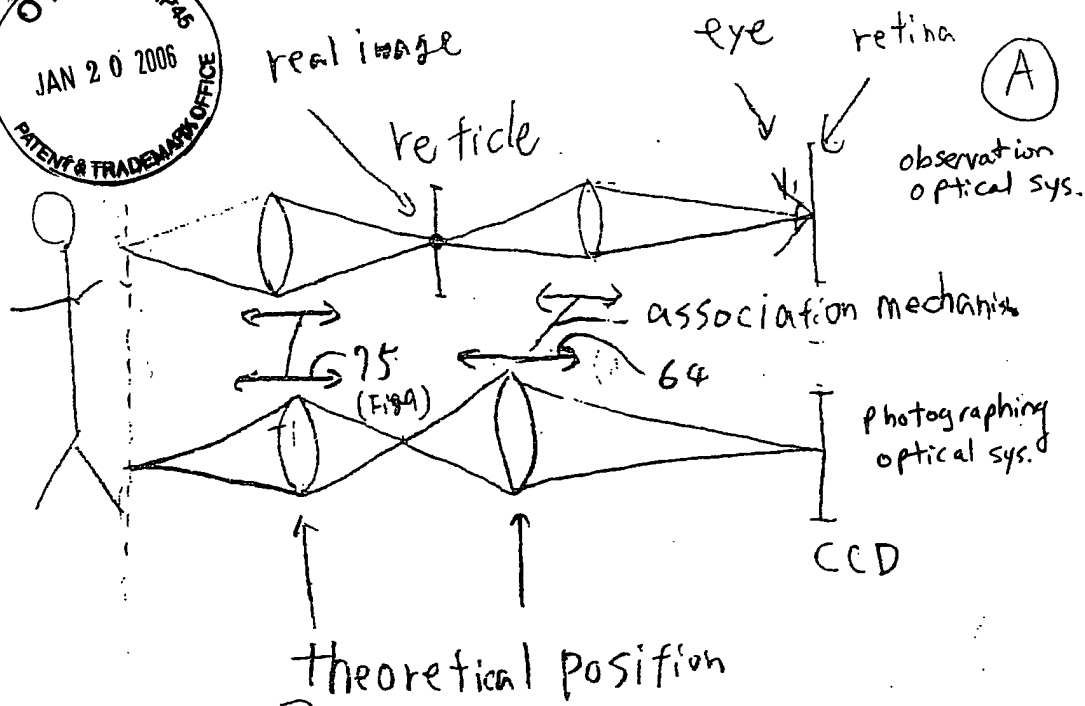 JAN 20 2006
PATENT & TRADEMARK OFFICE
real image
reticle
eye
retina
A
observation
optical sys.
association mechanism
75
(Fig 9)
64
photographing
optical sys.
CCD
theoretical position